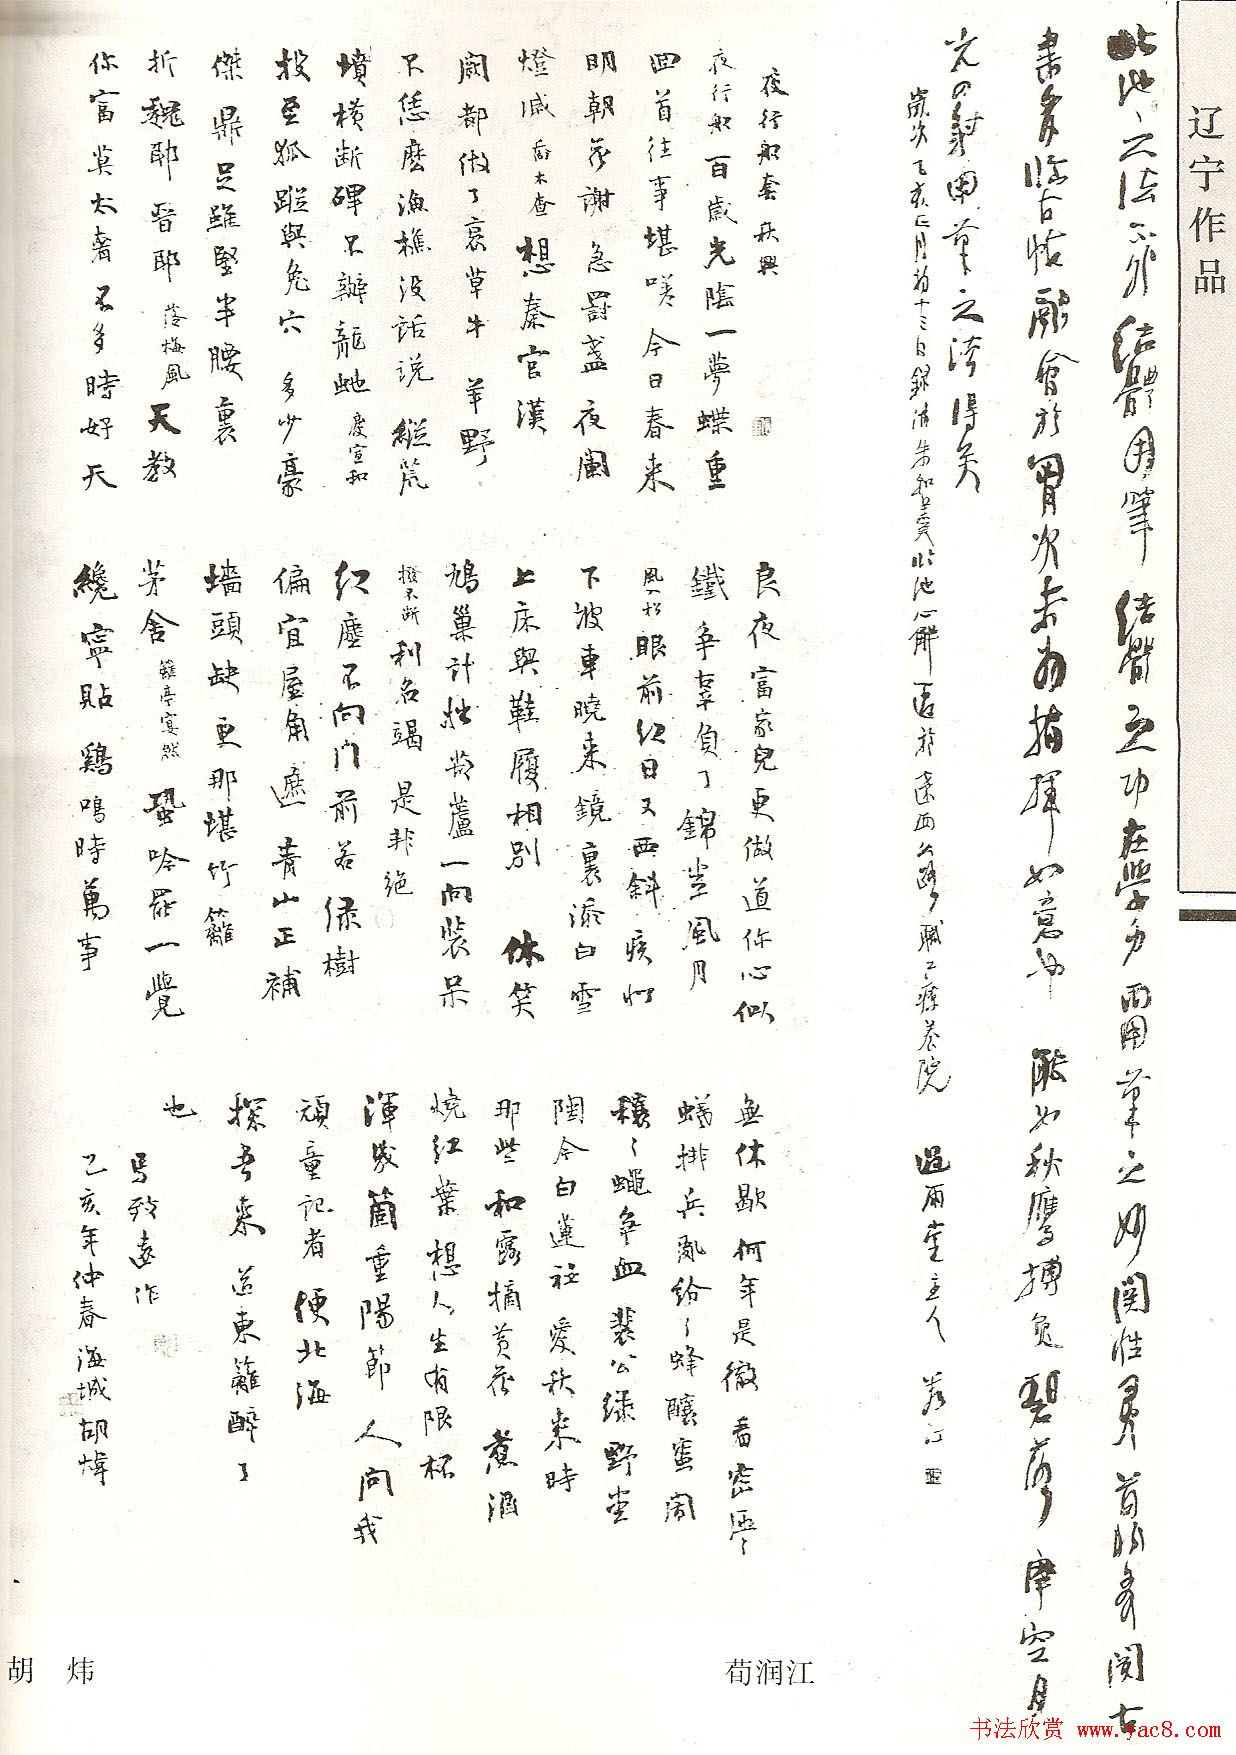 辽宁作品
临池之法不外结体用筆结體之功在學力而用筆之妙関性靈苟非多阅古
書多临古帖融會於胸次未易指揮如意也能如秋鹰搏兔碧落摩空目
光四射用筆之法得矣
歲次乙亥正月初十三日録清朱和羹临池心解
職工療养院
過雨堂主人
夜行船套 秋興
夜行船 百歲光陰一夢蝶重
回首往事堪嗟今日春来
明朝花謝急罰盞夜闌
燈滅 喬木查 想秦宫漢
闕都做了衰草牛羊野
不恁麽漁樵没話说縱荒
墳横断碑不辨龍虵 慶宣和
投至狐蹤與兔穴多少豪
傑鼎足雖堅半腰裏
折魏耶晋耶 落梅風 天教
你富莫太奢不多時好天
良夜富家兒更做道你心似
鐵争辜負了錦堂風月
風入松 眼前红日又西斜疾似
下坡車曉来鏡裏添白雪
上床與鞋履相别休笑
鳩巢計拙葫蘆一向装呆
撥不断 利名竭是非绝
红塵不向门前若绿樹
偏宜屋角遮青山正補
墙頭缺更那堪竹籬
茅舍 離亭宴煞 蛩吟罷一覺
纔寧貼鷄鳴時萬事
無休歇何年是徹看密匝匝
蟻排兵亂纷纷蜂釀蜜闹
穰穰蠅争血裴公绿野堂
陶令白蓮社愛秋来時
那些和露摘黄花煮酒
燒红葉想人生有限杯
渾幾箇重陽節人问我
頑童記者便北海
探吾来道東籬醉了
也
馬致遠作
乙亥年仲春海城胡煒
胡 炜
荀润江
书法欣赏 www.yac8.com